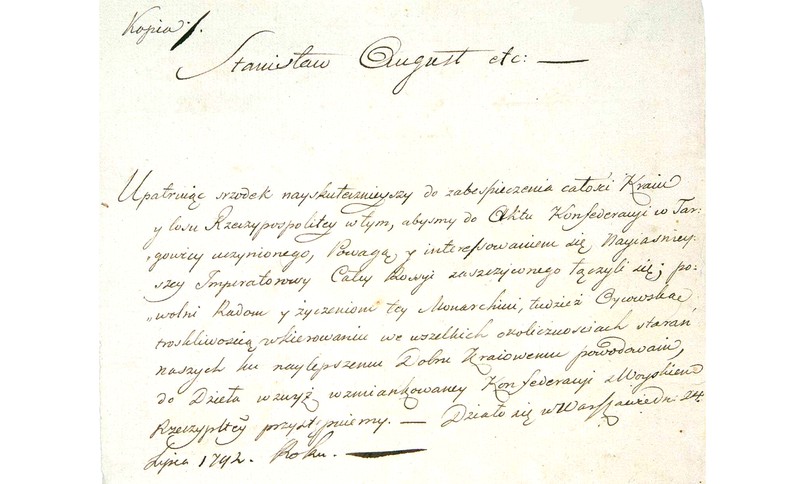 Kopia ·/.
Stanisław August etc: —
Upatruiąc srzodek nayskutecznieyszy do zabespieczenia całości Kraiu
y losu Rzeczypospolitey w tym, abyśmy do Aktu Konfederacyi w Tar:
„gowicy uczynionego, Powagą y interessowaniem się Nayiaśniey-
szey Imperatorowy Całey Rossyi zaszczyconego łączyli się; po:
„wolni Radom y życzeniom tey Monarchini, tudzież Oycowską
troskliwością w kierowaniu we wszelkich okolicznościach starań
naszych ku naylepszemu Dobru Kraiowemu powodowani,
do Dzieła wzwyż wzmiankowaney Konfederacyi z Woyskiem
Rzeczypltey przystąpiemy. — Działo się w Warszawie dn: 24.
Lipca 1792. Roku. —